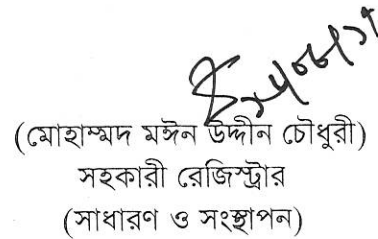 (মোহাম্মদ মঈন উদ্দীন চৌধুরী)
সহকারী রেজিস্ট্রার
(সাধারণ ও সংস্থাপন)